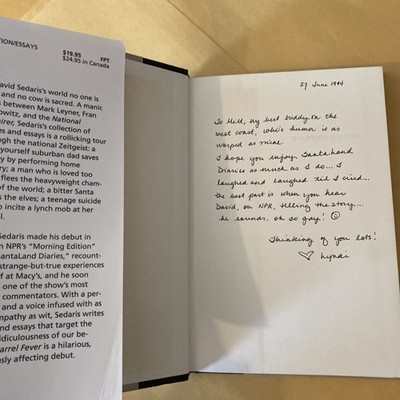 TION/ESSAYS
$19.95 FPT
$24.95 in Canada
avid Sedaris's world no one is
and no cow is sacred. A manic
s between Mark Leyner, Fran
owitz, and the National
irer, Sedaris's collection of
es and essays is a rollicking tour
ugh the national Zeitgeist: a
yourself suburban dad saves
ey by performing home
ry; a man who is loved too
flees the heavyweight cham-
of the world; a bitter Santa
s the elves; a teenage suicide
o incite a lynch mob at her
l.
Sedaris made his debut in
n NPR's "Morning Edition"
antaLand Diaries," recount-
strange-but-true experiences
f at Macy's, and he soon
one of the show's most
commentators. With a per-
and a voice infused with as
mpathy as wit, Sedaris writes
and essays that target the
diculousness of our be-
arrel Fever is a hilarious,
usly affecting debut.
27 June 1994
To Milt, my best buddy on the
west coast, who's humor is as
warped as mine
I hope you enjoy SantaLand
Diaries as much as I do... I
laughed and laughed 'til I cried...
the best part is when you hear
David, on NPR, telling the story....
he sounds, oh so gay! ☺
Thinking of you lots!
♡ Lyndi